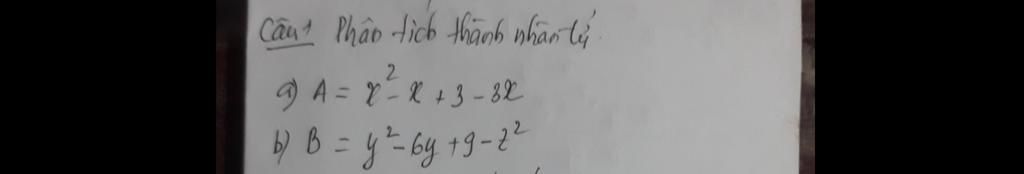 Câu 1 Phân tích thành nhân tử.
a) A = x² - x + 3 - 3x
b) B = y² - 6y + 9 - z²